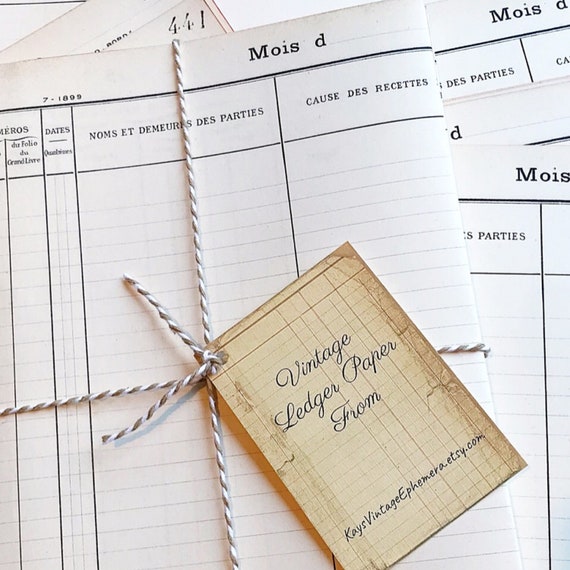 441
Mois d
7-1899
MÉROS
DATES
NOMS ET DEMEURES DES PARTIES
CAUSE DES RECETTES
du Folio
du
Grand Livre
Quantièmes
Mois d
DES PARTIES
d
Mois
S PARTIES
Vintage
Ledger Paper
From
KaysVintageEphemera.etsy.com